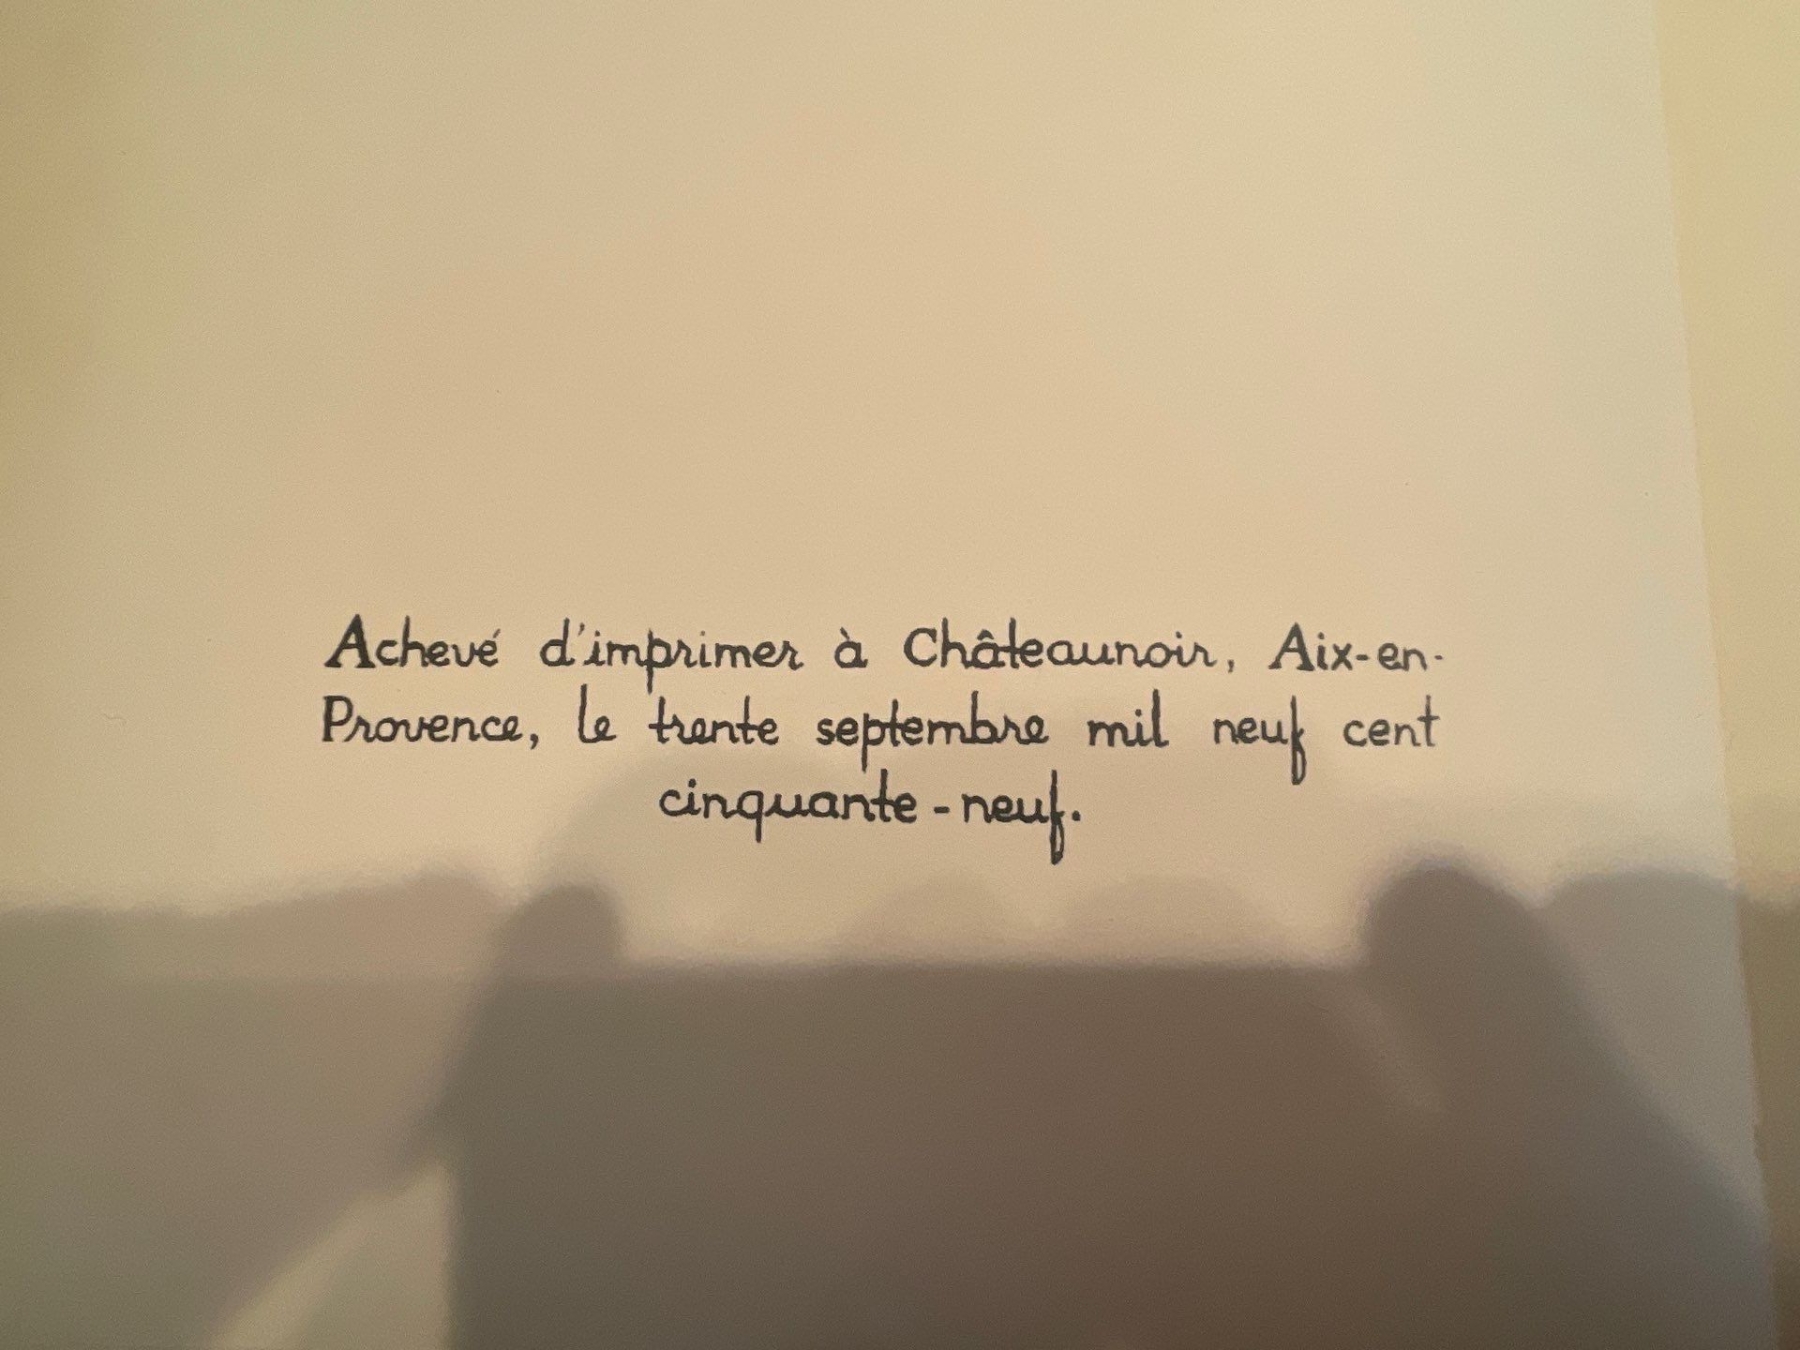 Achevé d'imprimer à Châteaunoir, Aix-en-
Provence, le trente septembre mil neuf cent
cinquante-neuf.